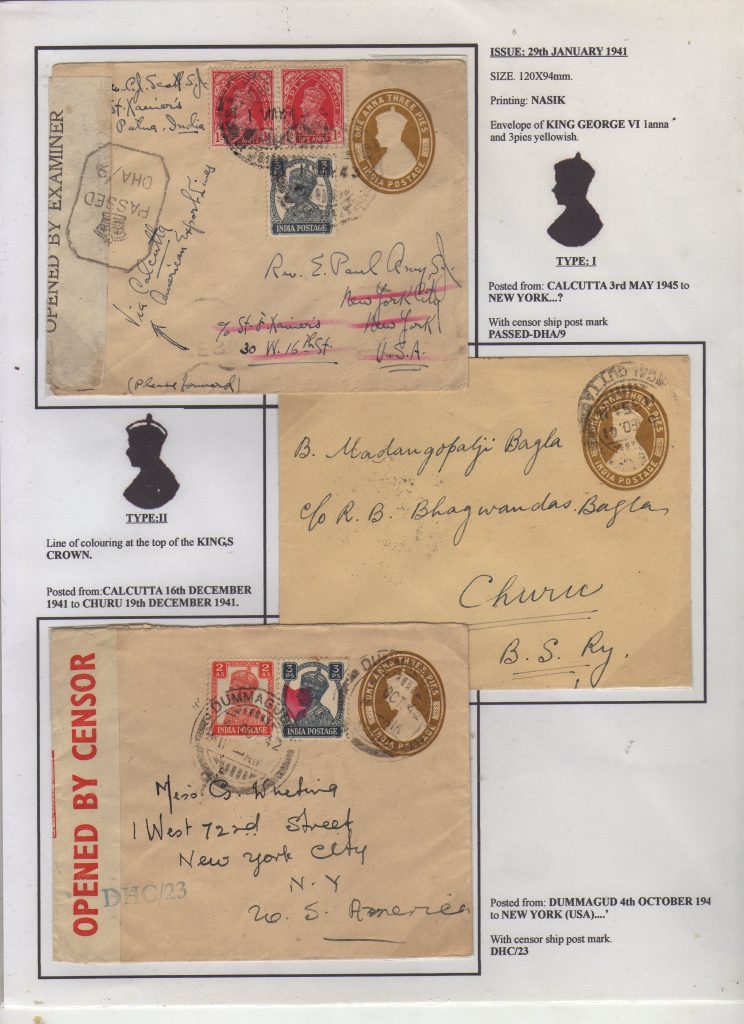 ISSUE: 29th JANUARY 1941
SIZE. 120X94mm.
Printing: NASIK
Envelope of KING GEORGE VI 1anna
and 3pies yellowish.
TYPE: I
Posted from: CALCUTTA 3rd MAY 1945 to
NEW YORK...?
With censor ship post mark
PASSED-DHA/9
OPENED BY EXAMINER
PASSED
DHA/9
C.J. Scott S.J.
St. Xavier's
Patna, India
ONE ANNA THREE PIES
INDIA POSTAGE
INDIA POSTAGE
Via Calcutta
American Export Lines
Rev. E. Paul Amy S.J.
New York City
c/o St. F. Xavier's New York
30 W. 16th St. U.S.A.
(Please forward)
TYPE:II
Line of colouring at the top of the KING,S
CROWN.
Posted from:CALCUTTA 16th DECEMBER
1941 to CHURU 19th DECEMBER 1941.
ONE ANNA THREE PIES
INDIA POSTAGE
B. Madangopalji Bagla
c/o R. B. Bhagwandas Bagla
Churu
B. S. Ry.
OPENED BY CENSOR
DHC/23
2 AS 2 AS
INDIA POSTAGE
3 PS 3 PS
INDIA POSTAGE
DUMMAGUD
OCT 42
ONE ANNA THREE PIES
INDIA POSTAGE
Miss G. Whiting
1 West 72nd Street
New York City
N. Y
U. S. America
Posted from: DUMMAGUD 4th OCTOBER 194
to NEW YORK (USA)....'
With censor ship post mark.
DHC/23